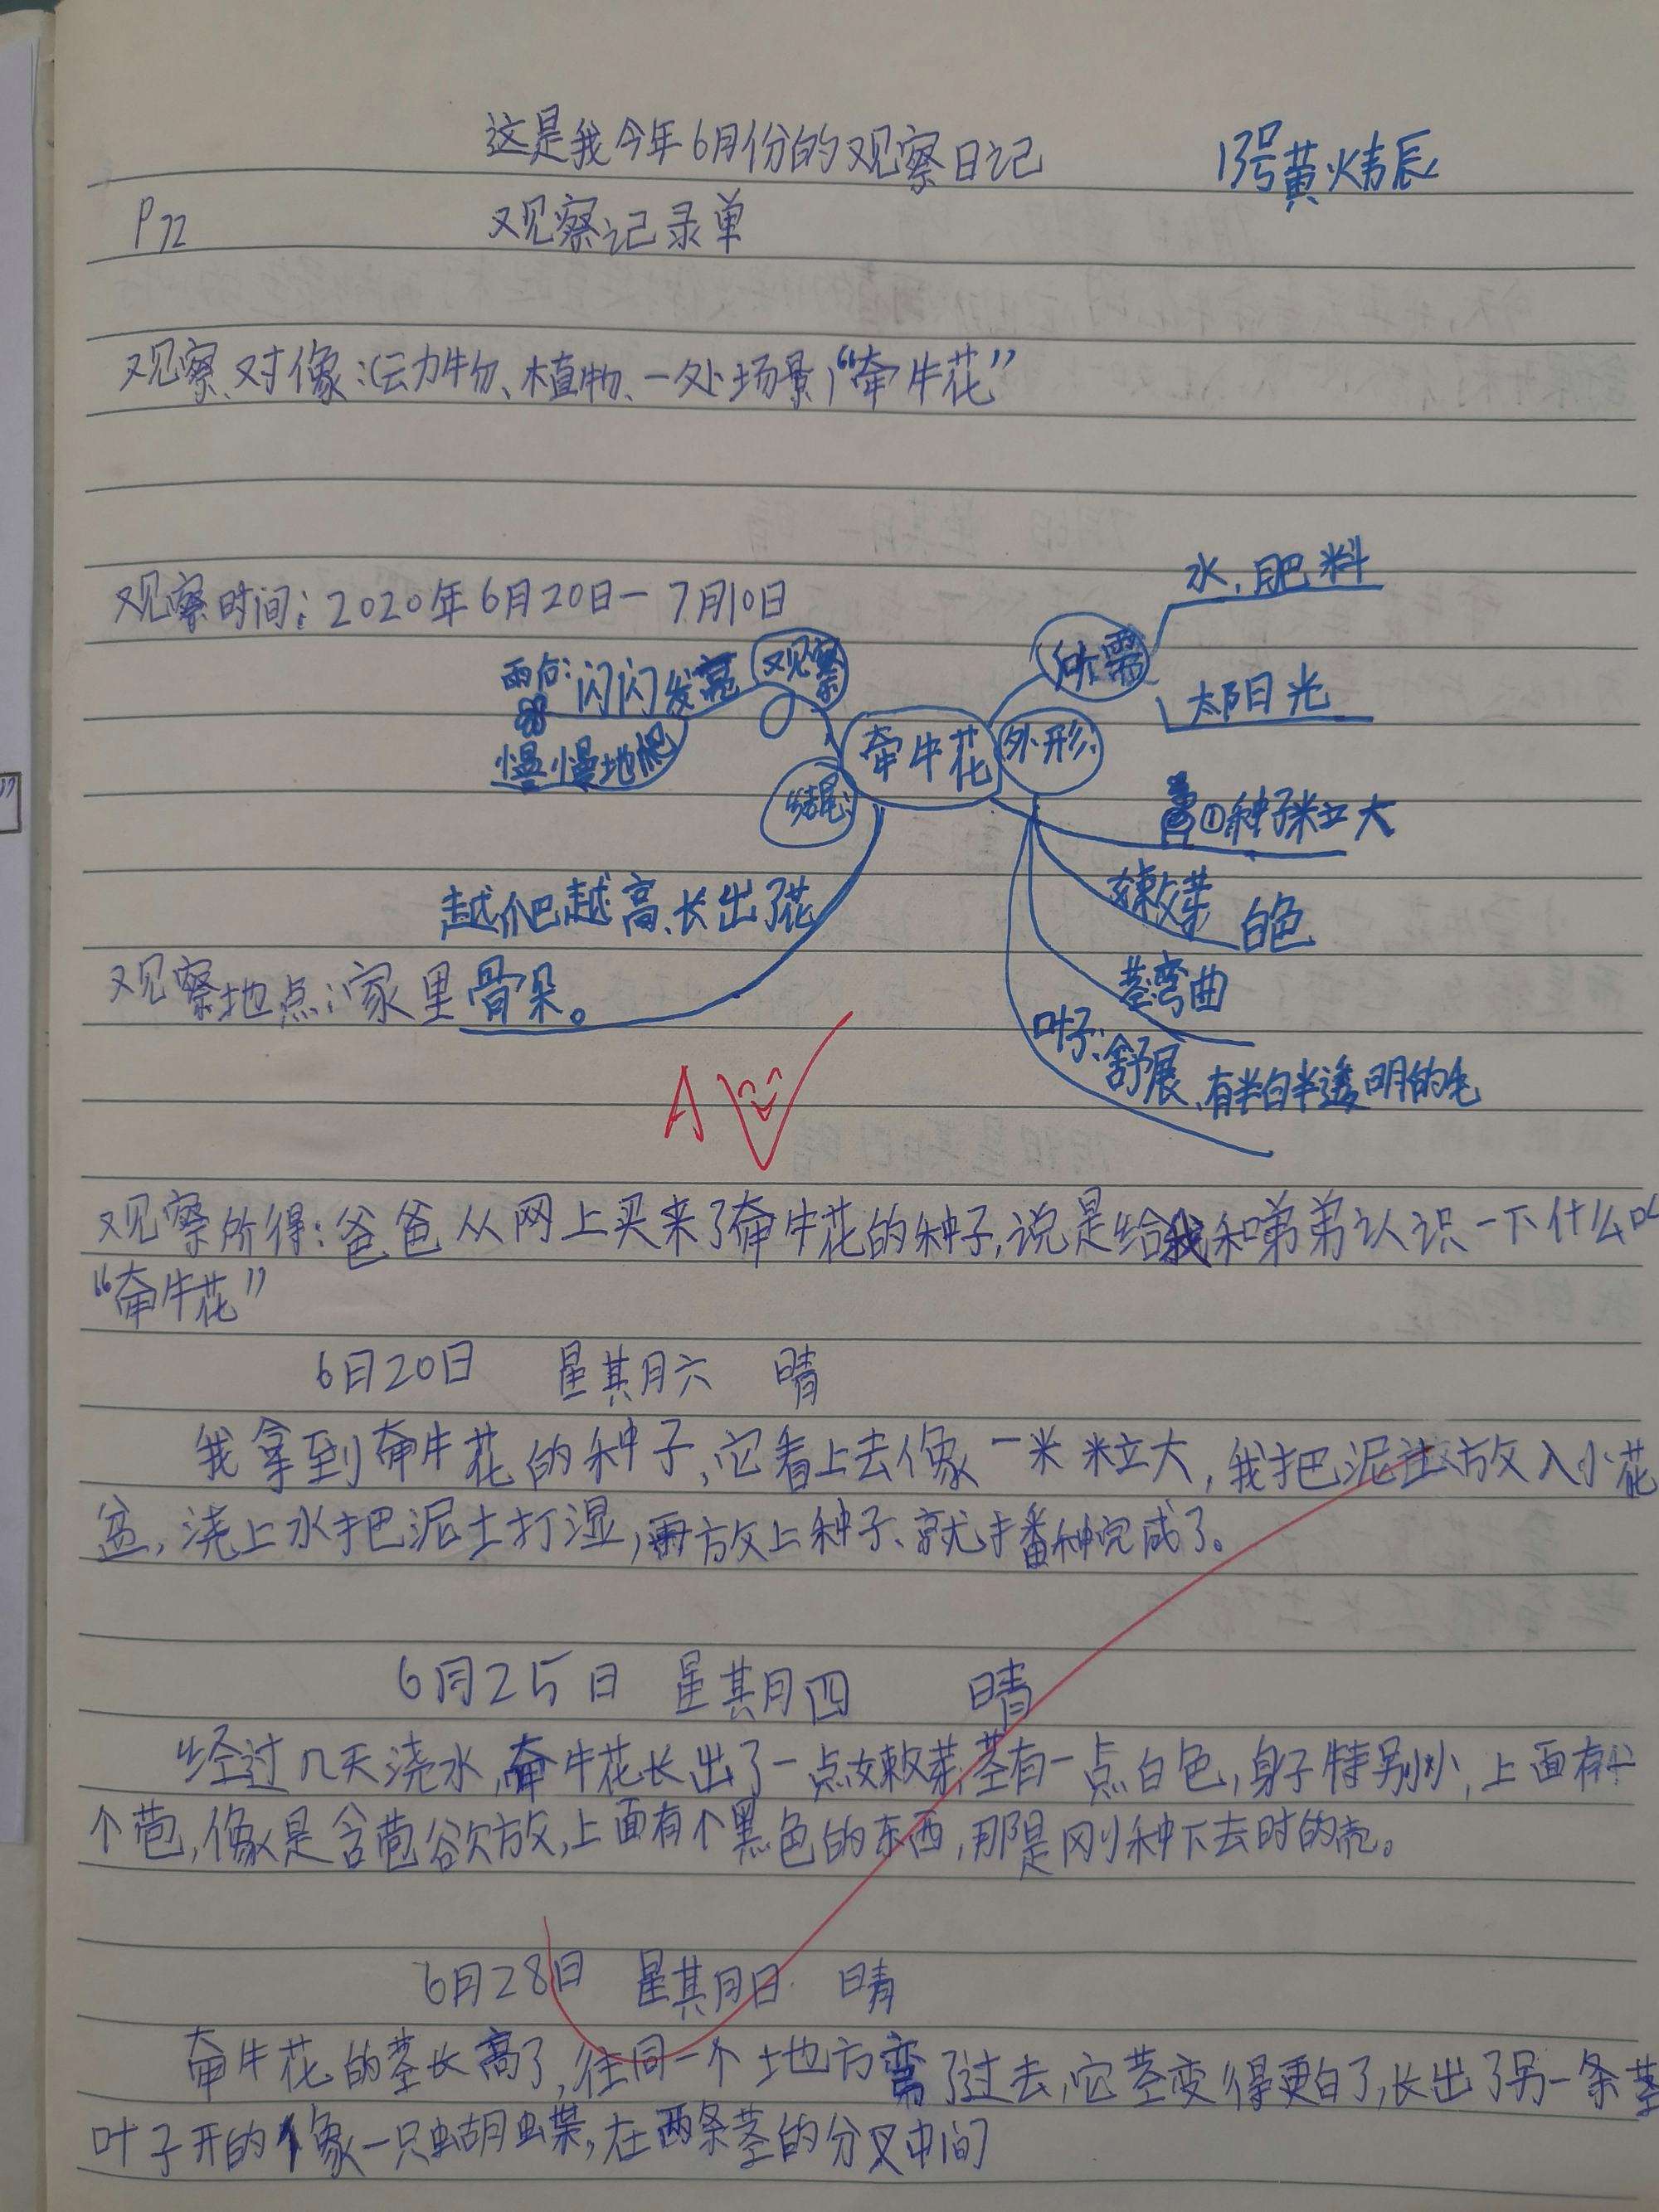 这是我今年6月份的观察日记
13号黄炜辰
P72
观察记录单
观察对像:(动物、植物、一处场景)“牵牛花”
水,肥料
观察时间:2020年6月20日一7月10日
所需
观察
雨后:闪闪发亮
太阳光
牵牛花
外形
慢慢地爬
结尾
①种子米粒大
嫩芽
白色
越爬越高、长出了花
骨朵。
茎弯曲
观察地点:家里
叶子:舒展、有半白半透明的毛
A
观察所得:爸爸从网上买来了牵牛花的种子,说是给我和弟弟认识一下什么叫
“牵牛花”
6月20日 星期六 晴
我拿到牵牛花的种子,它看上去像一米粒大,我把泥土放入小花
盆,浇上水把泥土打湿,再放上种子、就播种完成了。
6月25日 星期四 晴
经过几天浇水,牵牛花长出了一点嫩芽,茎有一点白色,身子特别小,上面有
个苞,像是含苞欲放,上面有个黑色的东西,那是刚种下去时的壳。
6月28日 星期日 晴
牵牛花的茎长高了,往同一个地方弯了过去,它茎变得更白了,长出了另一条茎
叶子开的像一只蝴蝶,在两条茎的分叉中间